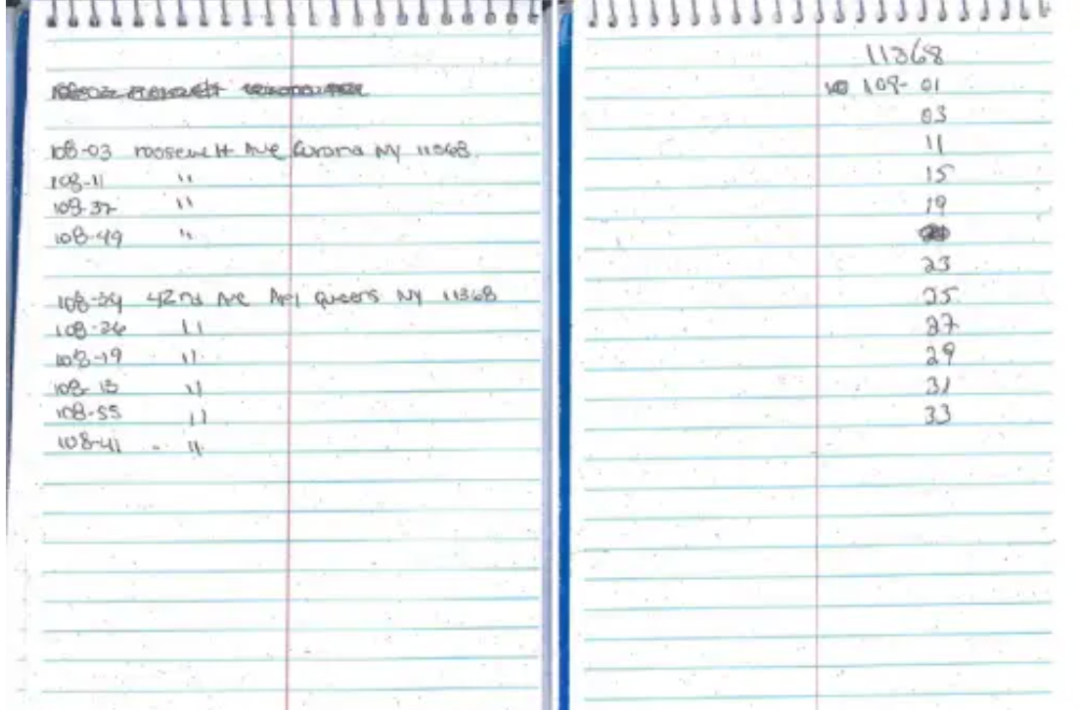 108-03 roosevelt Ave Corona NY 11368
108-11 "
108-37 "
108-49 "
108-24 42nd Ave Apt Queens NY 11368
108-26 "
108-19 "
108-15 "
108-55 "
108-41 - "
11368
109-01
03
11
15
19
23
25
27
29
31
33